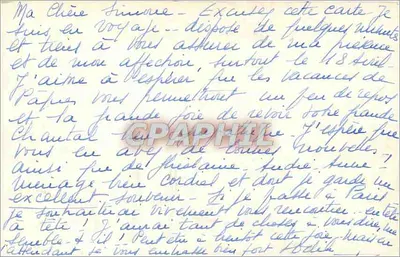 Ma Chère Simone - Excusez cette carte. Je
suis en voyage - dispose de quelques minutes
et tiens à vous assurer de ma présence
et de mon affection, surtout le 18 Avril.
J'aime à espérer que les vacances de
Pâques vous permettront un peu de repos
et la grande joie de revoir votre grande
Chantal J'espère que
CPAPHIL
vous en avez de bonnes nouvelles,
ainsi que de Ghislaine André, Anne
ménage bien cordial et dont je garde un
excellent souvenir - Si je passe à Paris
je souhaiterai vivement vous rencontrer - en tête
à tête ! J'aurai tant de choses à vous dire,
à bientôt cette joie - mais en
l'attendant je vous embrasse bien fort